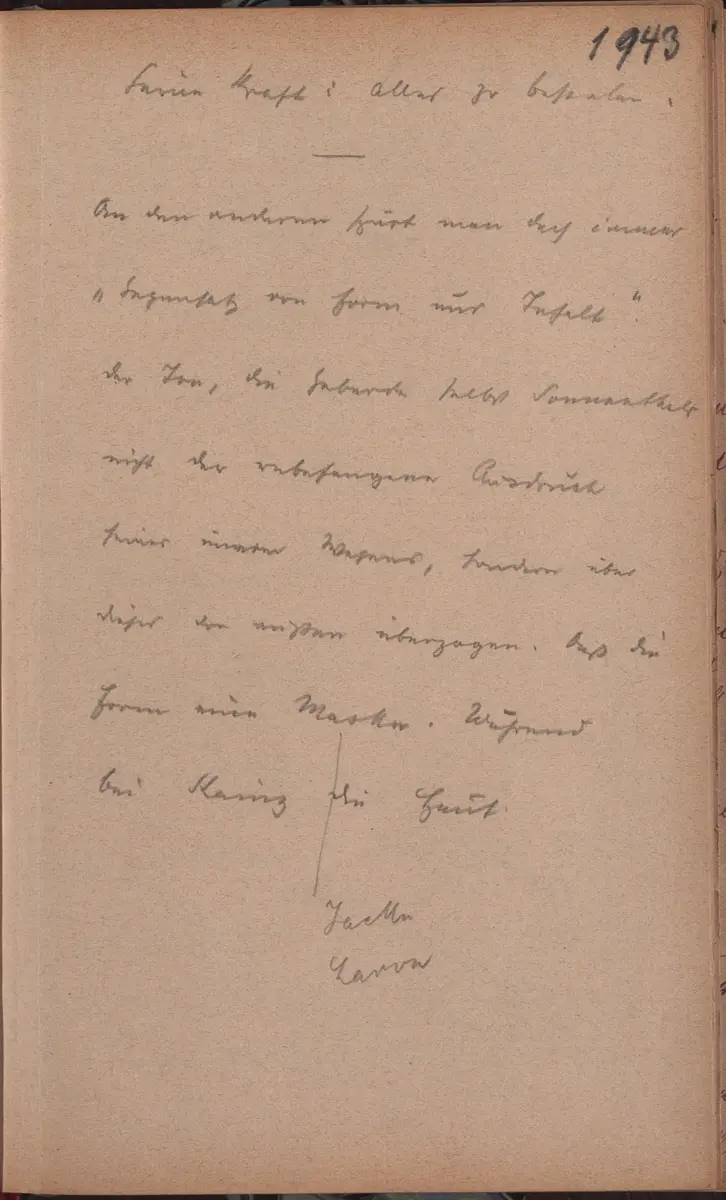 1943
Seine Kraft: alles zu beseelen.
An den anderen spürt man doch immer
„Gegensatz von Form und Inhalt“.
der Ton, die Geberde selbst Sonnenthals
nicht der unbefangene Ausdruck
seines inneren Wesens, sondern über
dieses von außen überzogen. Daß die
Form eine Maske. Während
bei Kainz die Haut.
Larve